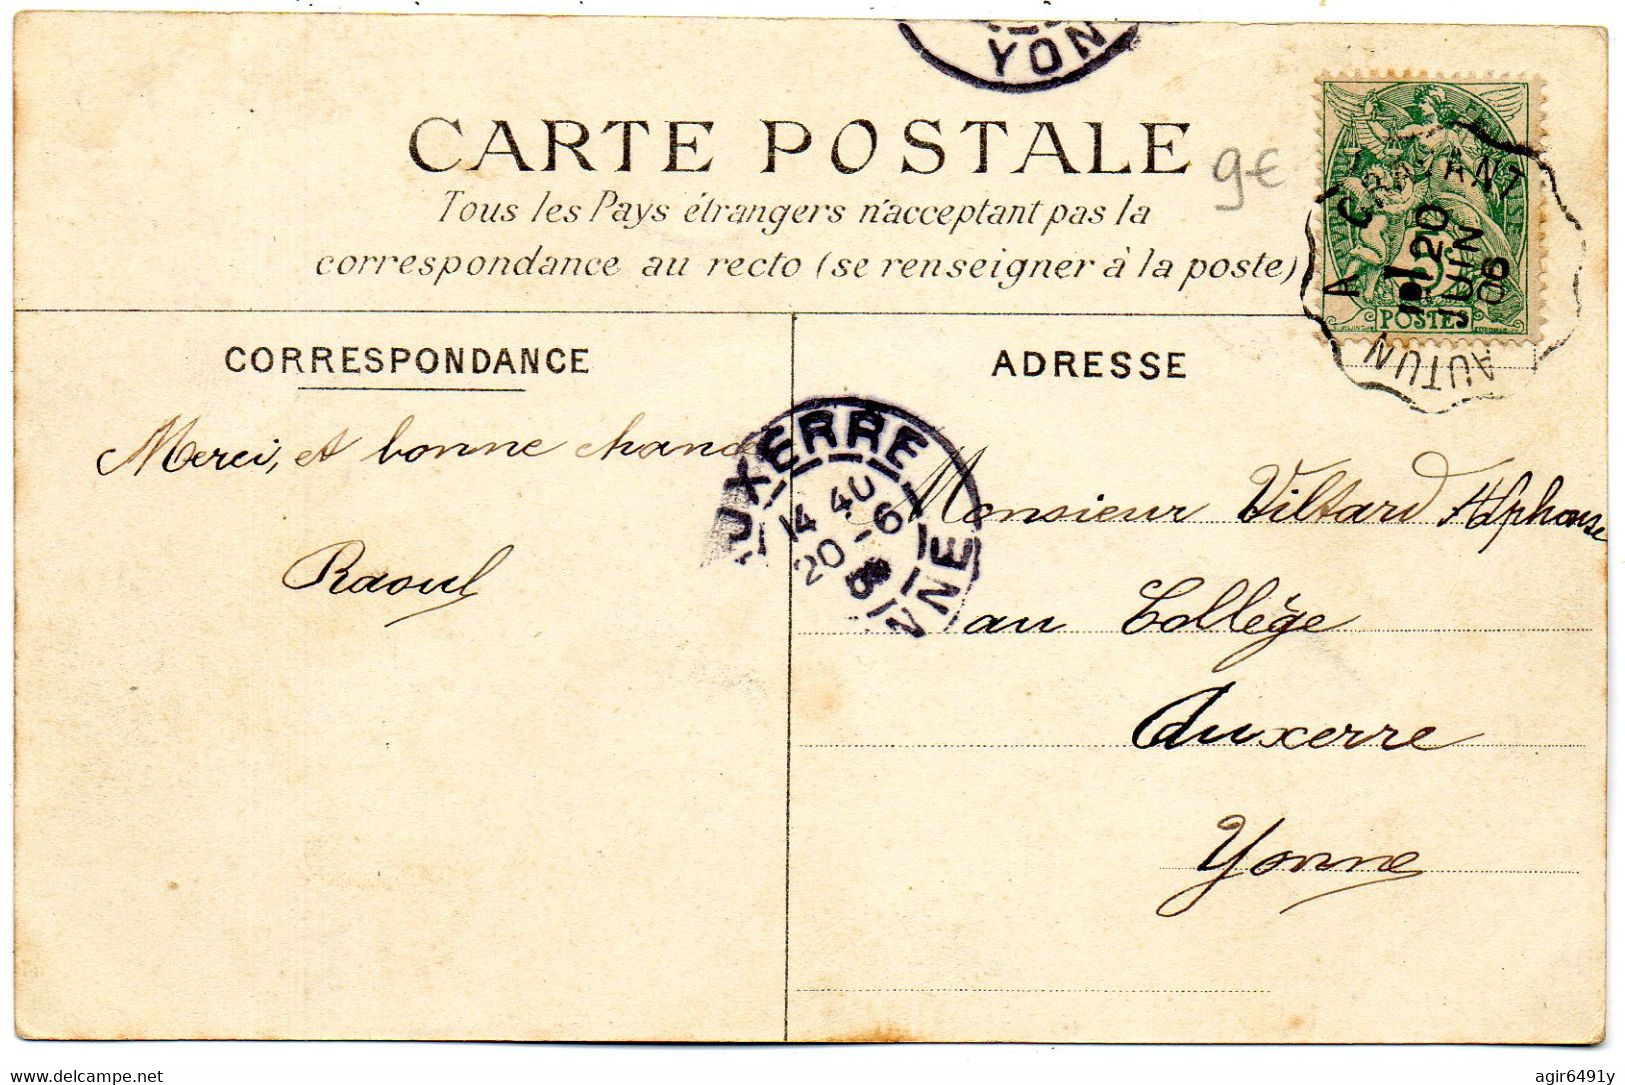 YON
CARTE POSTALE
9€
Tous les Pays étrangers n'acceptant pas la
correspondance au recto (se renseigner à la poste)
AUTUN A CRAVANT
20
JUIN
06
POSTES
CORRESPONDANCE
ADRESSE
Merci, et bonne chance
Raoul
UXERRE
14 40
20 -6
YONNE
Monsieur Viltard Alphonse
au Collège
Auxerre
Yonne
delcampe.net
agir6491y